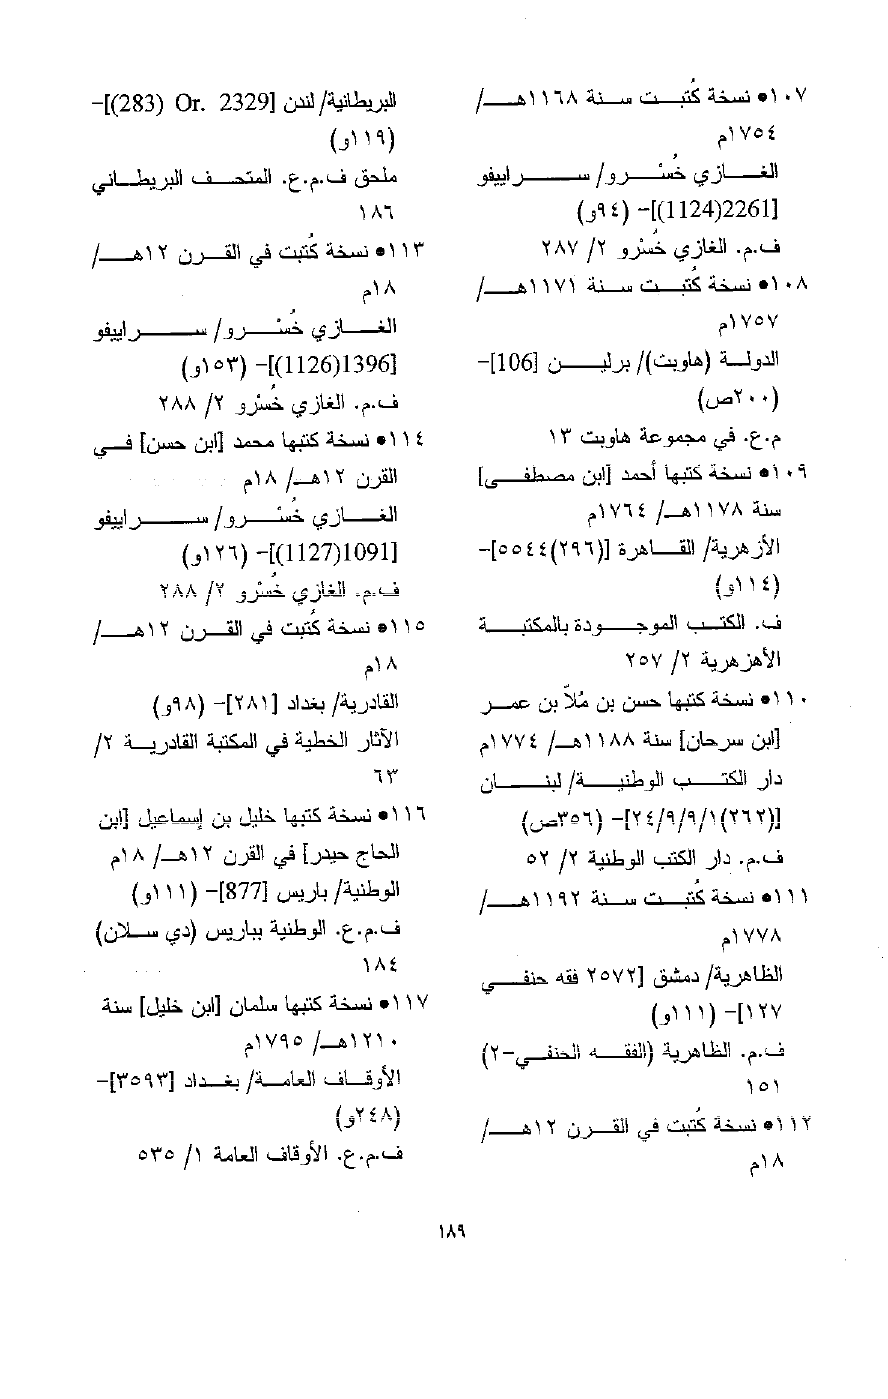 ١٠٧• نسخة كُتبت سنة ١١٦٨هـ/
١٧٥٤م
الغازي خُسْرو/ سراييفو
[2261(1124)]- (٩٤و)
ف.م. الغازي خُسْرو ٢/ ٢٨٧
١٠٨• نسخة كُتبت سنة ١١٧١هـ/
١٧٥٧م
الدولة (هاوبت)/ برلين [106]-
(٢٠٠ص)
م.ع. في مجموعة هاوبت ١٣
١٠٩• نسخة كتبها أحمد [ابن مصطفى]
سنة ١١٧٨هـ/ ١٧٦٤م
الأزهرية/ القاهرة [(٢٩٦)٥٥٤٤]-
(١١٤و)
ف. الكتب الموجودة بالمكتبة
الأهزهرية ٢/ ٢٥٧
١١٠• نسخة كتبها حسن بن مُلاّ بن عمر
[ابن سرحان] سنة ١١٨٨هـ/ ١٧٧٤م
دار الكتب الوطنية/ لبنان
[(٢٦٢)٢٤/٩/٩/١]- (٣٥٦ص)
ف.م. دار الكتب الوطنية ٢/ ٥٢
١١١• نسخة كُتبت سنة ١١٩٢هـ/
١٧٧٨م
الظاهرية/ دمشق [٢٥٧٢ فقه حنفي
١٢٧]- (١١١و)
ف.م. الظاهرية (الفقه الحنفي-٢)
١٥١
١١٢• نسخة كُتبت في القرن ١٢هـ/
١٨م
البريطانية/ لندن [2329 .Or (283)]-
(١١٩و)
ملحق ف.م.ع. المتحف البريطاني
١٨٦
١١٣• نسخة كُتبت في القرن ١٢هـ/
١٨م
الغازي خُسْرو/ سراييفو
[1396(1126)]- (١٥٣و)
ف.م. الغازي خُسْرو ٢/ ٢٨٨
١١٤• نسخة كتبها محمد [ابن حسن] في
القرن ١٢هـ/ ١٨م
الغازي خُسْرو/ سراييفو
[1091(1127)]- (١٢٦و)
ف.م. الغازي خُسْرو ٢/ ٢٨٨
١١٥• نسخة كُتبت في القرن ١٢هـ/
١٨م
القادرية/ بغداد [٢٨١]- (٩٨و)
الآثار الخطية في المكتبة القادرية ٢/
٦٣
١١٦• نسخة كتبها خليل بن إسماعيل [ابن
الحاج حيدر] في القرن ١٢هـ/ ١٨م
الوطنية/ باريس [877]- (١١١و)
ف.م.ع. الوطنية بباريس (دي سلان)
١٨٤
١١٧• نسخة كتبها سلمان [ابن خليل] سنة
١٢١٠هـ/ ١٧٩٥م
الأوقاف العامة/ بغداد [٣٥٩٣]-
(٢٤٨و)
ف.م.ع. الأوقاف العامة ١/ ٥٣٥
١٨٩